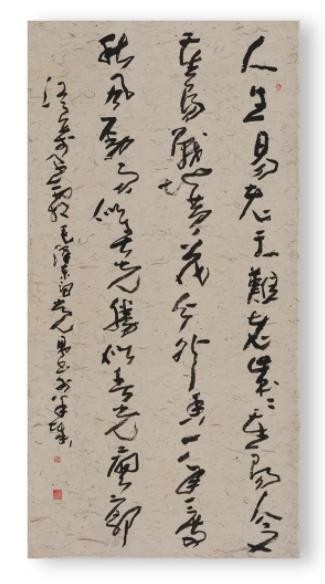 人生易老天難老歲〻重陽今又
重陽戰地黃花分外香一年一度
秋風勁不似春光勝似春光寥廓
江天萬里霜 毛澤東詞